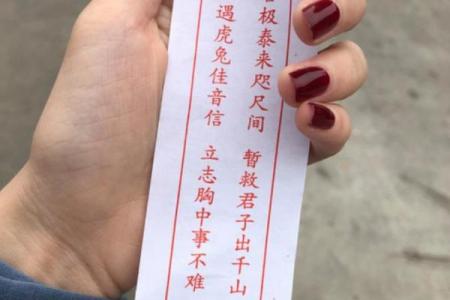 极泰来咫尺间 暂救君子出千山
遇虎兔佳音信 立志胸中事不难